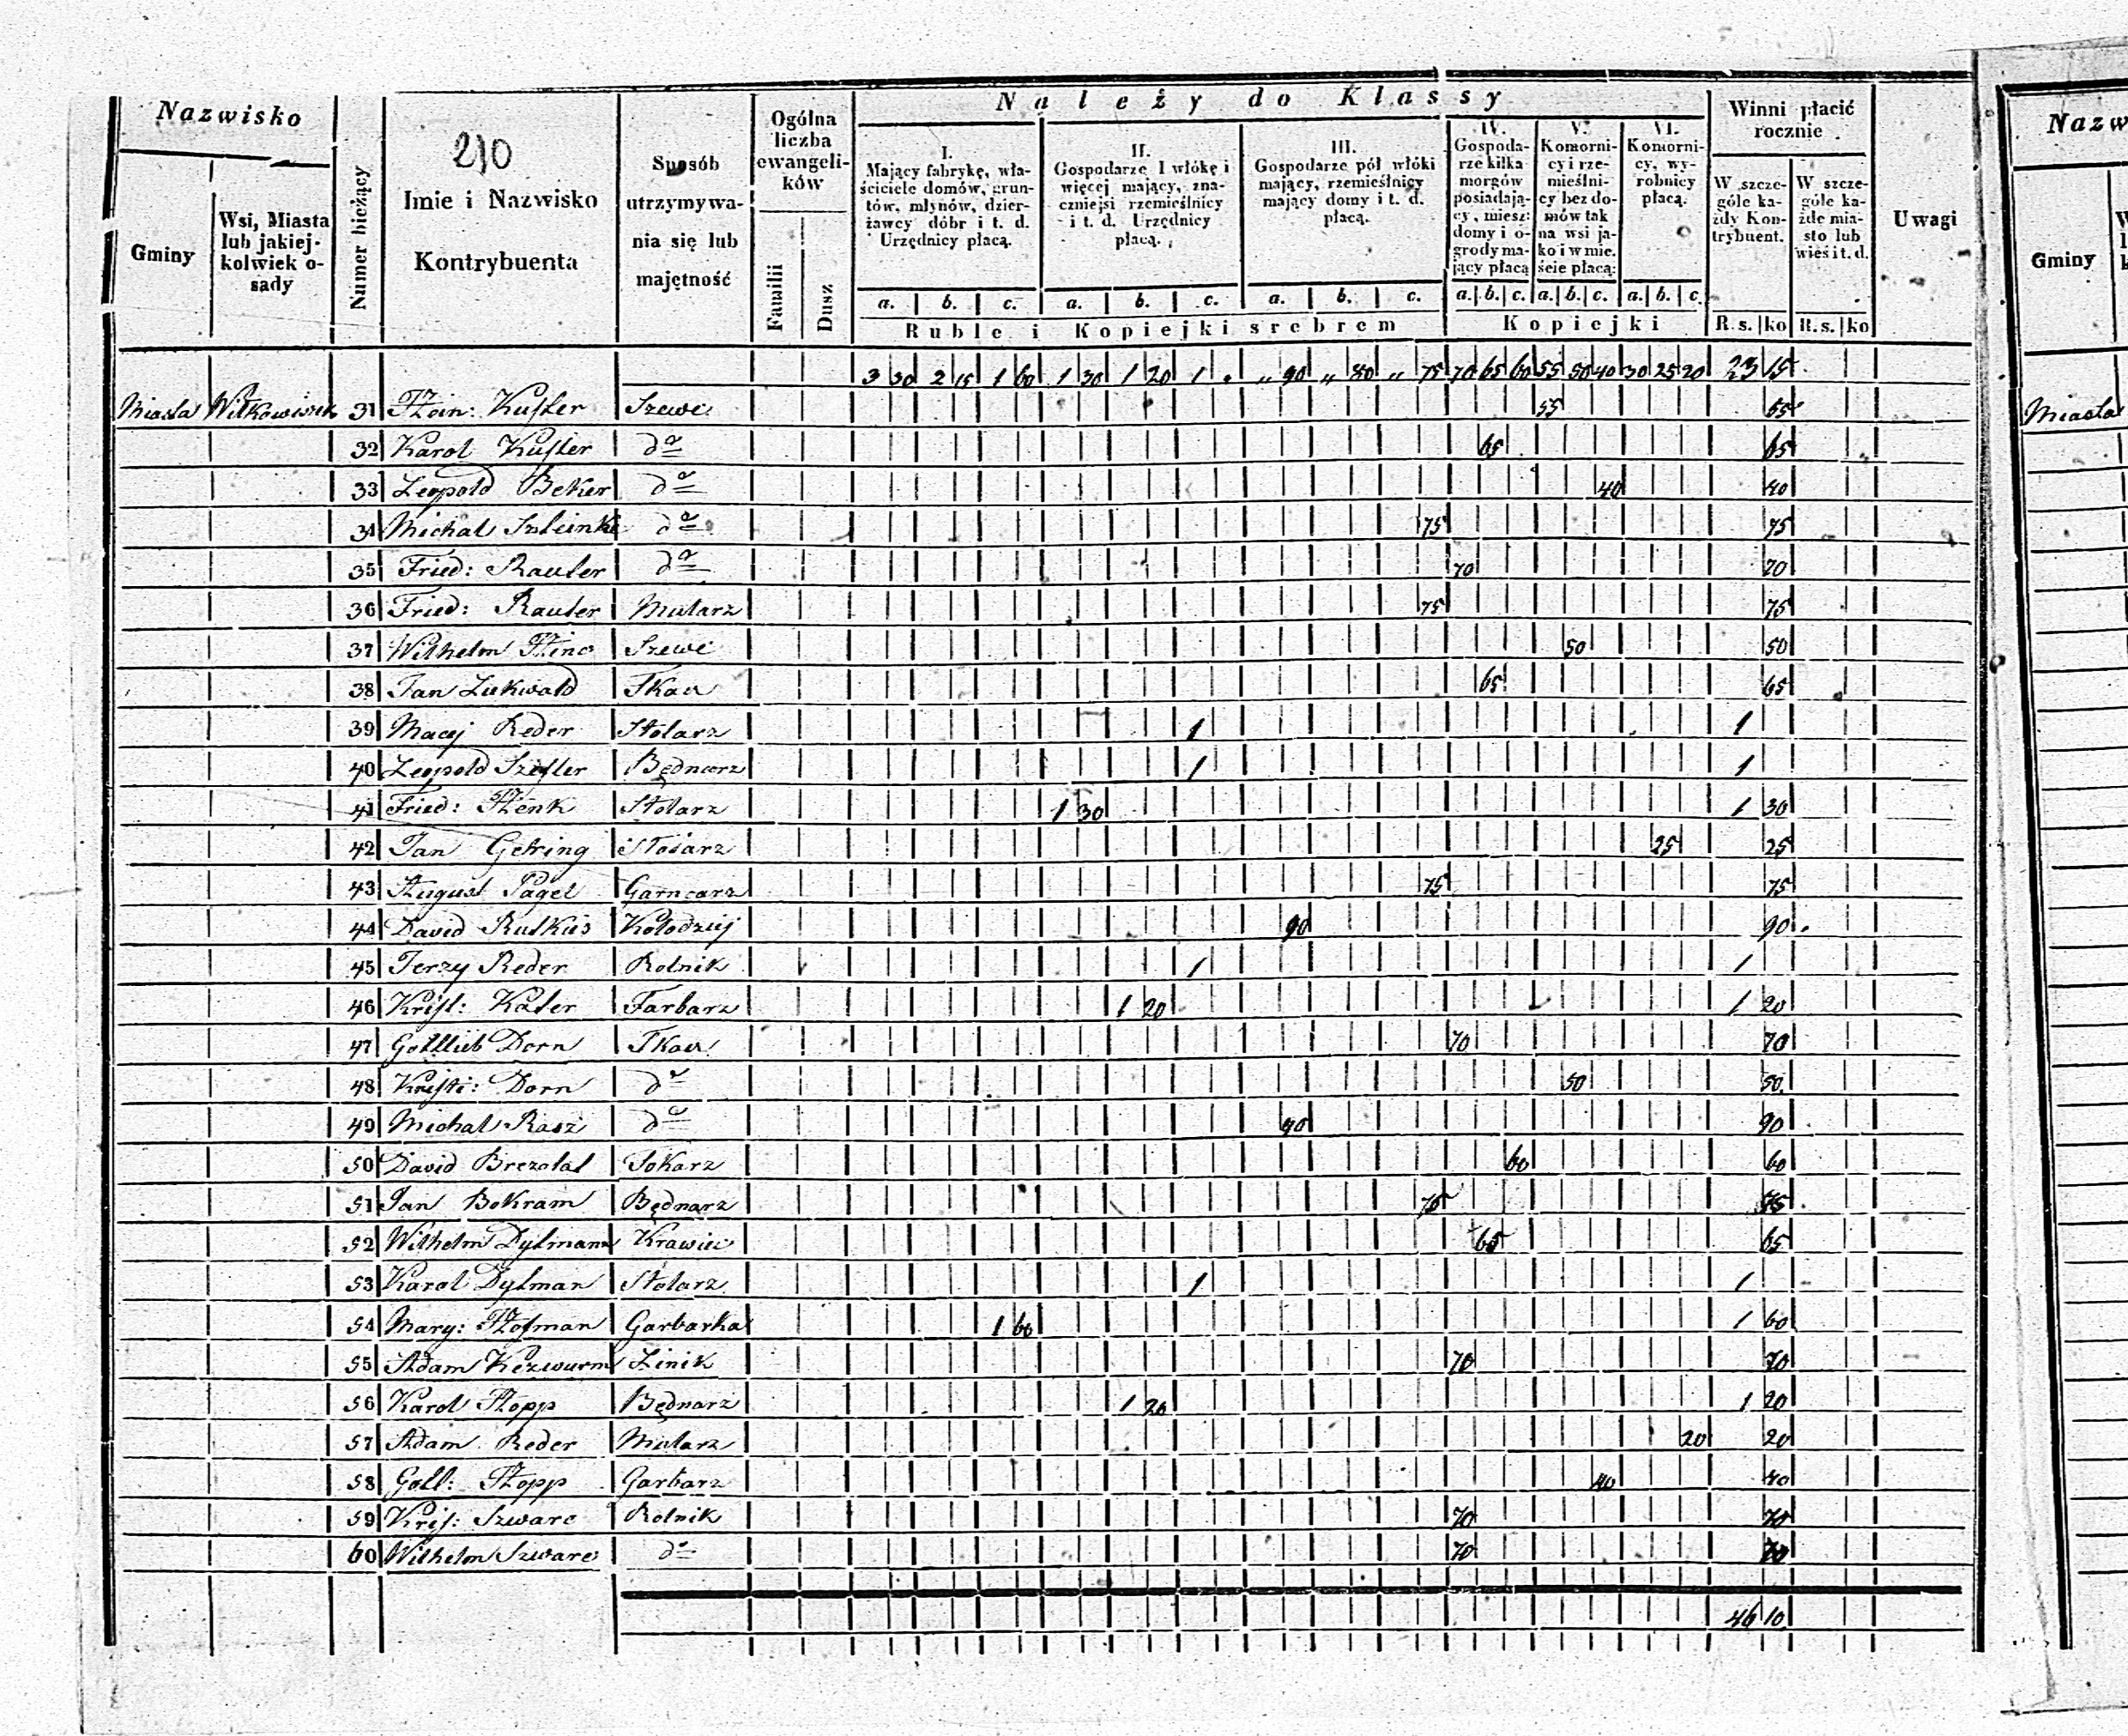 Nazwisko
Gminy
Wsi, Miasta lub jakiej-kolwiek o-sady
Numer bieżący
210
Imie i Nazwisko Kontrybuenta
Sposób utrzymywa-nia się lub majętność
Ogólna liczba ewangeli-ków
Familii
Dusz
Należy do Klassy
I. Mający fabrykę, wła-ściciele domów, grun-tów, młynów, dzier-żawcy dóbr i t. d. Urzędnicy płacą.
II. Gospodarze 1 włókę i więcej mający, zna-czniejsi rzemieślnicy i t. d. Urzędnicy płacą.
III. Gospodarze pół włóki mający, rzemieślnicy mający domy i t. d. płacą.
IV. Gospoda-rze kilka morgów posiadają-cy, miesz: domy i o-grody ma-jący płacą
V. Komorni-cy i rze-mieślni-cy bez do-mów tak na wsi ja-ko i w mie-ście płacą:
VI. Komorni-cy, wy-robnicy płacą.
Winni płacić rocznie
W szcze-góle ka-żdy Kon-trybuent.
W szcze-góle ka-żde mia-sto lub wieś i t. d.
Uwagi
a. b. c. a. b. c. a. b. c. a. b. c. a. b. c. a. b. c.
Ruble i Kopiejki srebrem Kopiejki R.s. ko R.s. ko
3 30 2 15 1 60 1 30 1 20 1 . „ 90 „ 80 „ 75 70 65 60 55 50 40 30 25 20 23 15
Miasta 31 Szewc 55
32 Karol Kusler do 65 65
33 Leopold Beker do 40 40
34 Michal do 75 75
35 Fried: Rauter do 70 70
36 Fried: Rauter Mularz 75 75
37 Wilhelm Szewc 50 50
38 Jan Tkacz 65 65
39 Macej Reder Stolarz 1 1
40 Leopold Bednarz 1 1
41 Fried: Stolarz 1 30 1 30
42 Jan Gehring 25 25
43 August Pagel Garncarz 75 75
44 David Rutkus Kołodziej 90 90
45 Jerzy Reder Rolnik 1 1
46 Krist: Kater Farbarz 1 20 1 20
47 Gottlieb Dorn Tkacz 70 70
48 Kristi: Dorn do 50 50
49 Michal Rasz do 90 90
50 David Tokarz 60 60
51 Jan Bokram Bednarz 75 75
52 Wilhelm Dylmann Krawiec 65 65
53 Karol Dylman Stolarz 1 1
54 Mary: Hofman Garbarka 1 60 1 60
55 Adam Kezwurm 70 70
56 Karol Hopp Bednarz 1 20 1 20
57 Adam Reder Mularz 20 20
58 Gotl: Hopp Garbarz 40 40
59 Kris: Szwarc Rolnik 70 70
60 Wilhelm Szwarc do 70 70
46 10
Gminy
Miasta